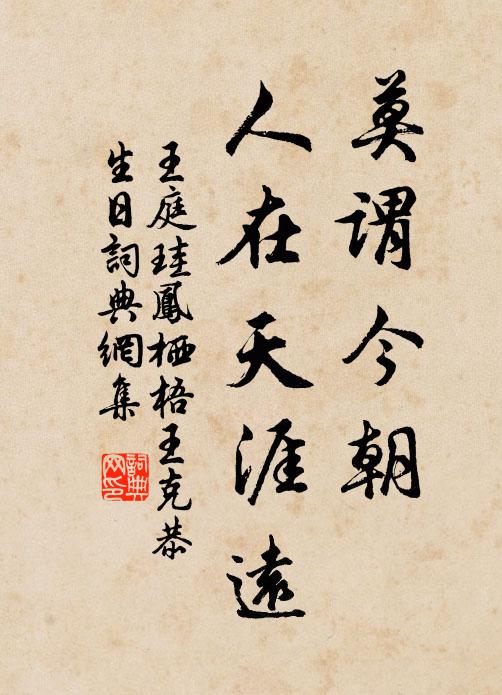 莫謂今朝
人在天涯遠
王庭珪鳳栖梧王克恭
生日詞典網集
詞典
网印